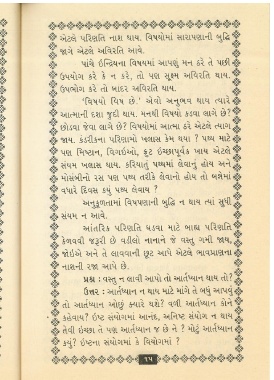 એટલે પરિણતિ નાશ થાય. વિષયોમાં સારાપણાની બુદ્ધિ
જાગે એટલે અવિરતિ આવે.
પાંચે ઇન્દ્રિયના વિષયમાં આપણું મન કરે તે પછી
ઉપયોગ કરે કે ન કરે, તો પણ સૂક્ષ્મ અવિરતિ થાય.
ઉપભોગ કરે તો બાદર અવિરતિ થાય.
'વિષયો વિષ છે.' એવો અનુભવ થાય ત્યારે
આત્માની દશા જુદી થાય. મનથી વિષયો કડવા લાગે છે?
છોડવા જેવા લાગે છે? વિષયોમાં આત્મા કરે એટલે ત્યાગ
જાય. કંડરીકના પરિણામો ખલાસ કેમ થયા? પથ્ય માટે
પણ મિષ્ટાન, વિગઈઓ, ફ્રૂટ ઇચ્છાપૂર્વક ખાય એટલે
સંયમ ખલાસ થાય. કરિયાતું પથ્યમાં લેવાનું હોય અને
મોસંબીનો રસ પણ પથ્ય તરીકે લેવાનો હોય તો બન્નેમાં
વધારે દિવસ કયું પથ્ય લેવાય?
અનુકૂળતામાં વિષપણાની બુદ્ધિ ન થાય ત્યાં સુધી
સંયમ ન આવે.
આંતરિક પરિણતિ ઘડવા માટે બાહ્ય પરિણતિ
કેળવવી જરૂરી છે વડીલો નાનાને જે વસ્તુ ગમી જાય,
જોઇએ અને તે લાવવાની છૂટ આપે એટલે ભાવપ્રાણના
નાશની રજા આપે છે.
પ્રશ્ન : વસ્તુ ન લાવી આપો તો આર્તધ્યાન થાય તો?
ઉત્તર : આર્તધ્યાન ન થાય માટે માંગે તે બધું આપવું
તો આર્તધ્યાન ઓછું ક્યારે થશે? વળી આર્તધ્યાન કોને
કહેવાય? ઇષ્ટ સંયોગમાં આનંદ, અનિષ્ટ સંયોગ ન થાય
તેવી ઇચ્છા તે પણ આર્તધ્યાન જ છે ને? મોટું આર્તધ્યાન
કયું? ઇષ્ટના સંયોગમાં કે વિયોગમાં?
૧૫